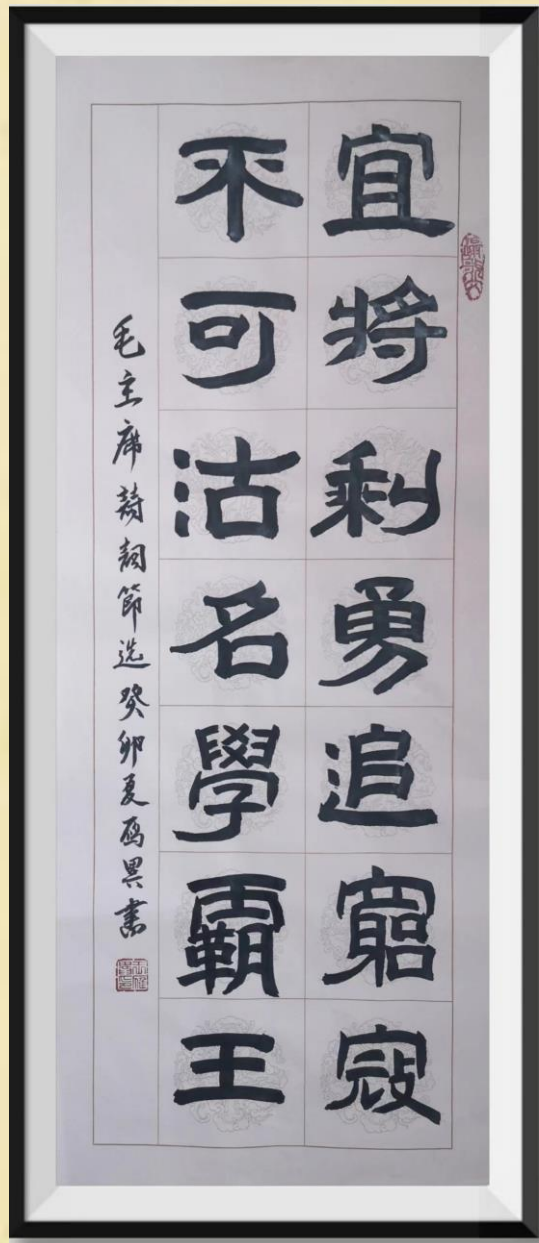 宜將剩勇追窮寇
不可沽名學霸王
毛主席詩詞節选癸卯夏
書